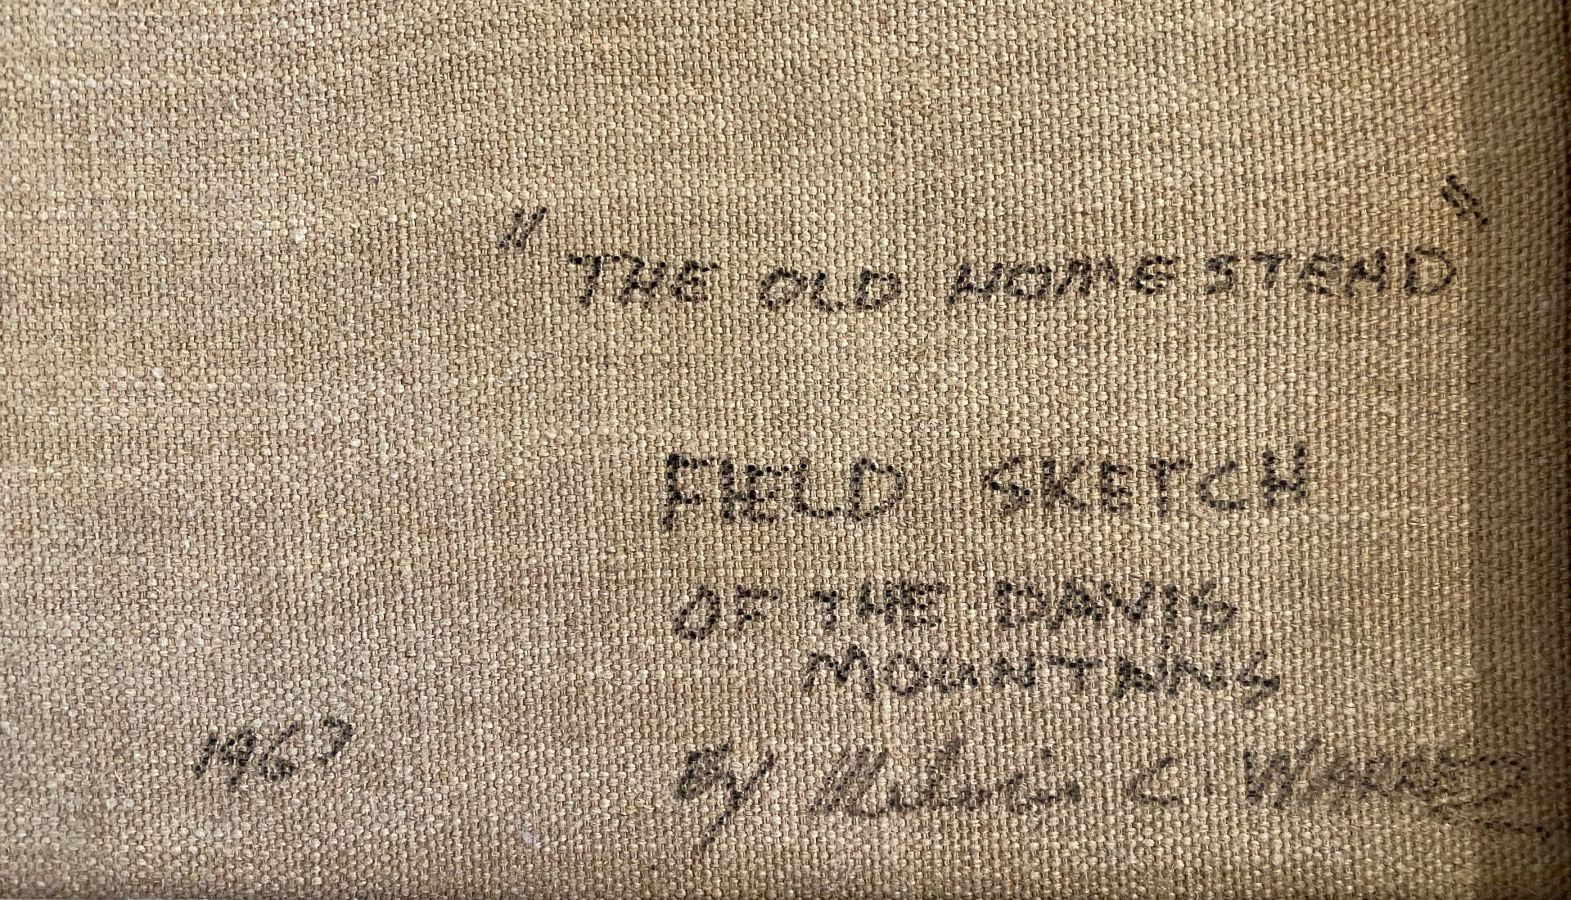 "THE OLD HOMESTEAD"
FIELD SKETCH
OF THE DAVIS
MOUNTAINS
1967
By Melvin C. WARREN